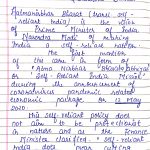 Atmanirbhar Bharat (
reliant India) is the vision
of Prime Minister of India
Narendra Modi of making
India a self-reliant nation.
The first mention
of the came in form
of 'Atma Nirbhar Bharat Abhiyan'
or 'Self-Reliant India Mission'
during the announcement
coronavirus pandemic related
economic package on 12 May
2020
This self-reliant policy does
not aim to be protectionist
in nature and as the Finance
Minister clarified, "self-reliant
India does not mean